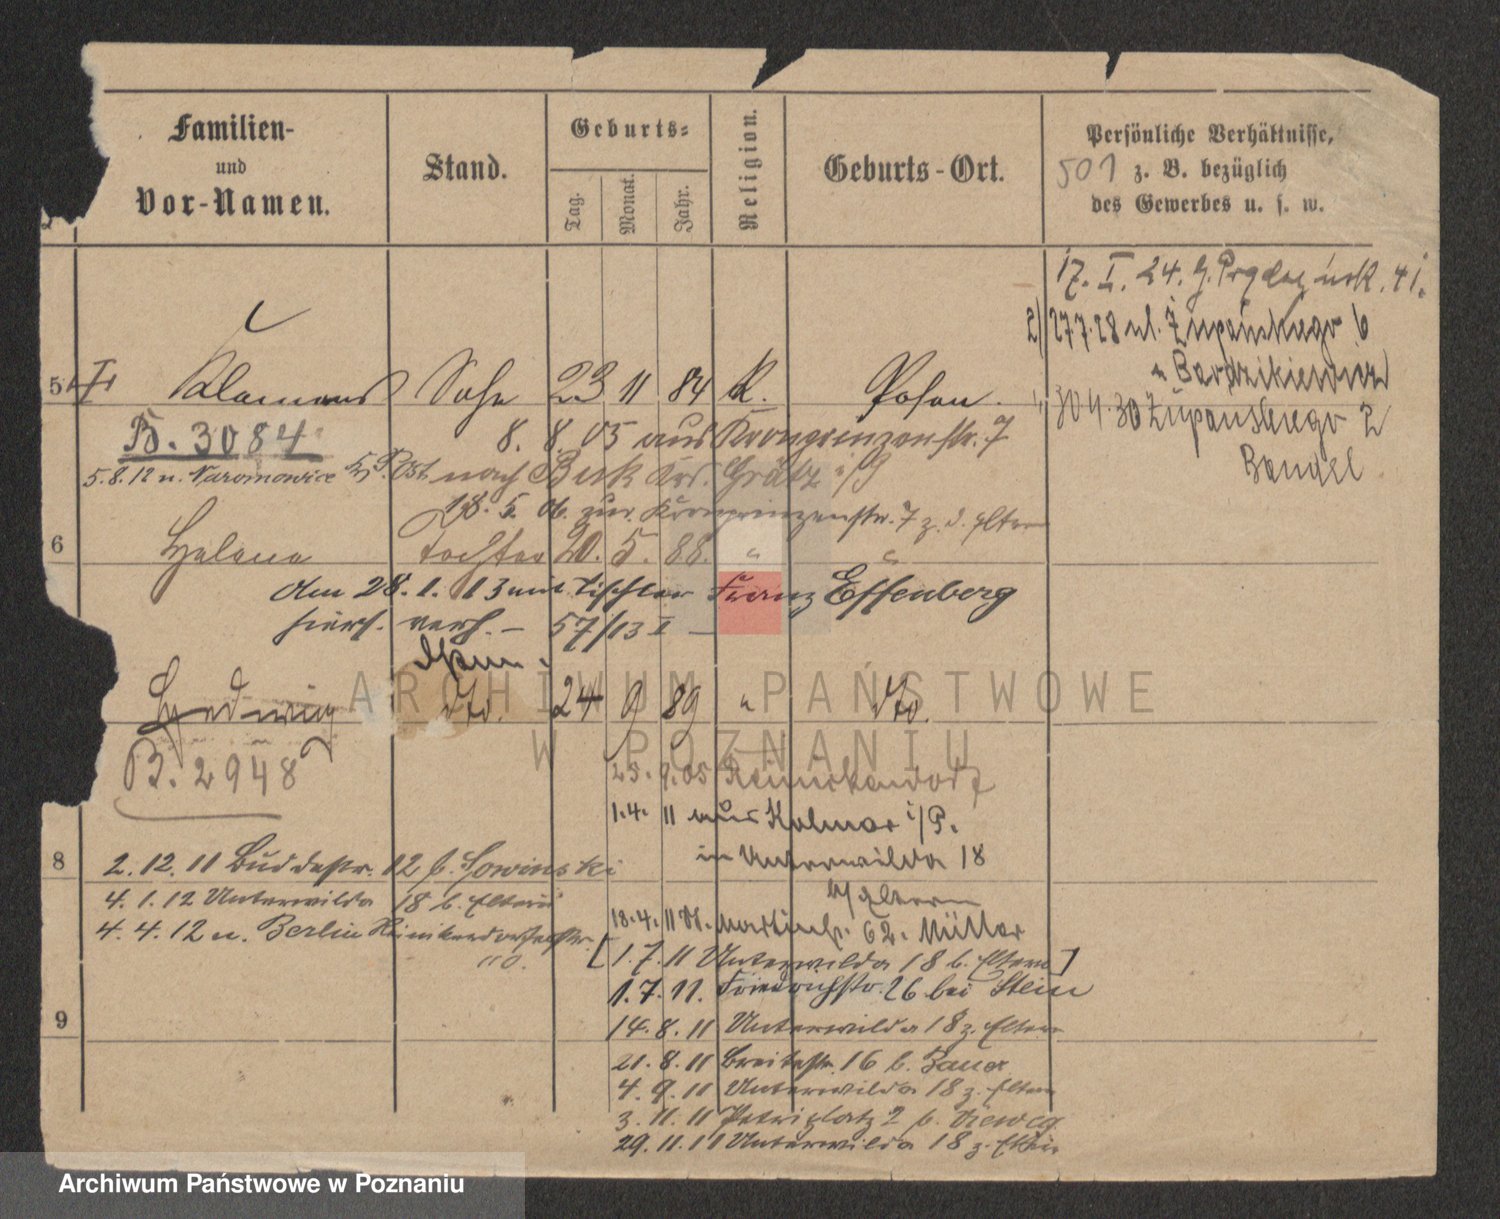 Familien-
und
Vor-Namen.
Stand.
Geburts-
Tag.
Monat.
Jahr.
Religion.
Geburts-Ort.
Persönliche Verhältnisse,
501 z. B. bezüglich
des Gewerbes u. s. w.
17. I. 24. G.
2) 27.7.28 ul. Żupańskiego 6
u Bardzikiewicz
5 Klemens Sohn 23 11 84 K. Posen.
30.4.30 Żupańskiego 2
B. 3084
8. 8. 05 aus Kronprinzenstr. 7
5.8.12 n. Naramowice
nach Buk Krs. Grätz
18. 5. 06. zur. Kronprinzenstr. 7 z. d. Eltern
6 Helene Tochter 20. 5. 88. "
Am 28. 1. 13 mit Tischler Franz Effenberg
hiers. verh. – 57/13 I –
Hedwig dto. 24 9 89 " dto.
B. 2948
25. 9. 05 Reinickendorf
1.4. 11 aus Kolmar i/P.
in Unterwilda 18
b/ Eltern
8
2. 12. 11 12 b. Sowinski
4. 1. 12 Unterwilda 18 b. Eltern
18.4. 11 St. Martinstr. 62. Müller
4. 4. 12 n. Berlin Reinickendorferstr.
110.
[1.7.11 Unterwilda 18 b. Eltern]
1.7.11. Friedrichstr. 26 bei Stein
9
14. 8. 11 Unterwilda 18 z. Eltern
21. 8. 11 Breitestr. 16 b.
4. 9. 11 Unterwilda 18 z. Eltern
3. 11. 11 Petriplatz 2 b.
29. 11. 11 Unterwilda 18 z. Eltern
ARCHIWUM PAŃSTWOWE
W POZNANIU
Archiwum Państwowe w Poznaniu